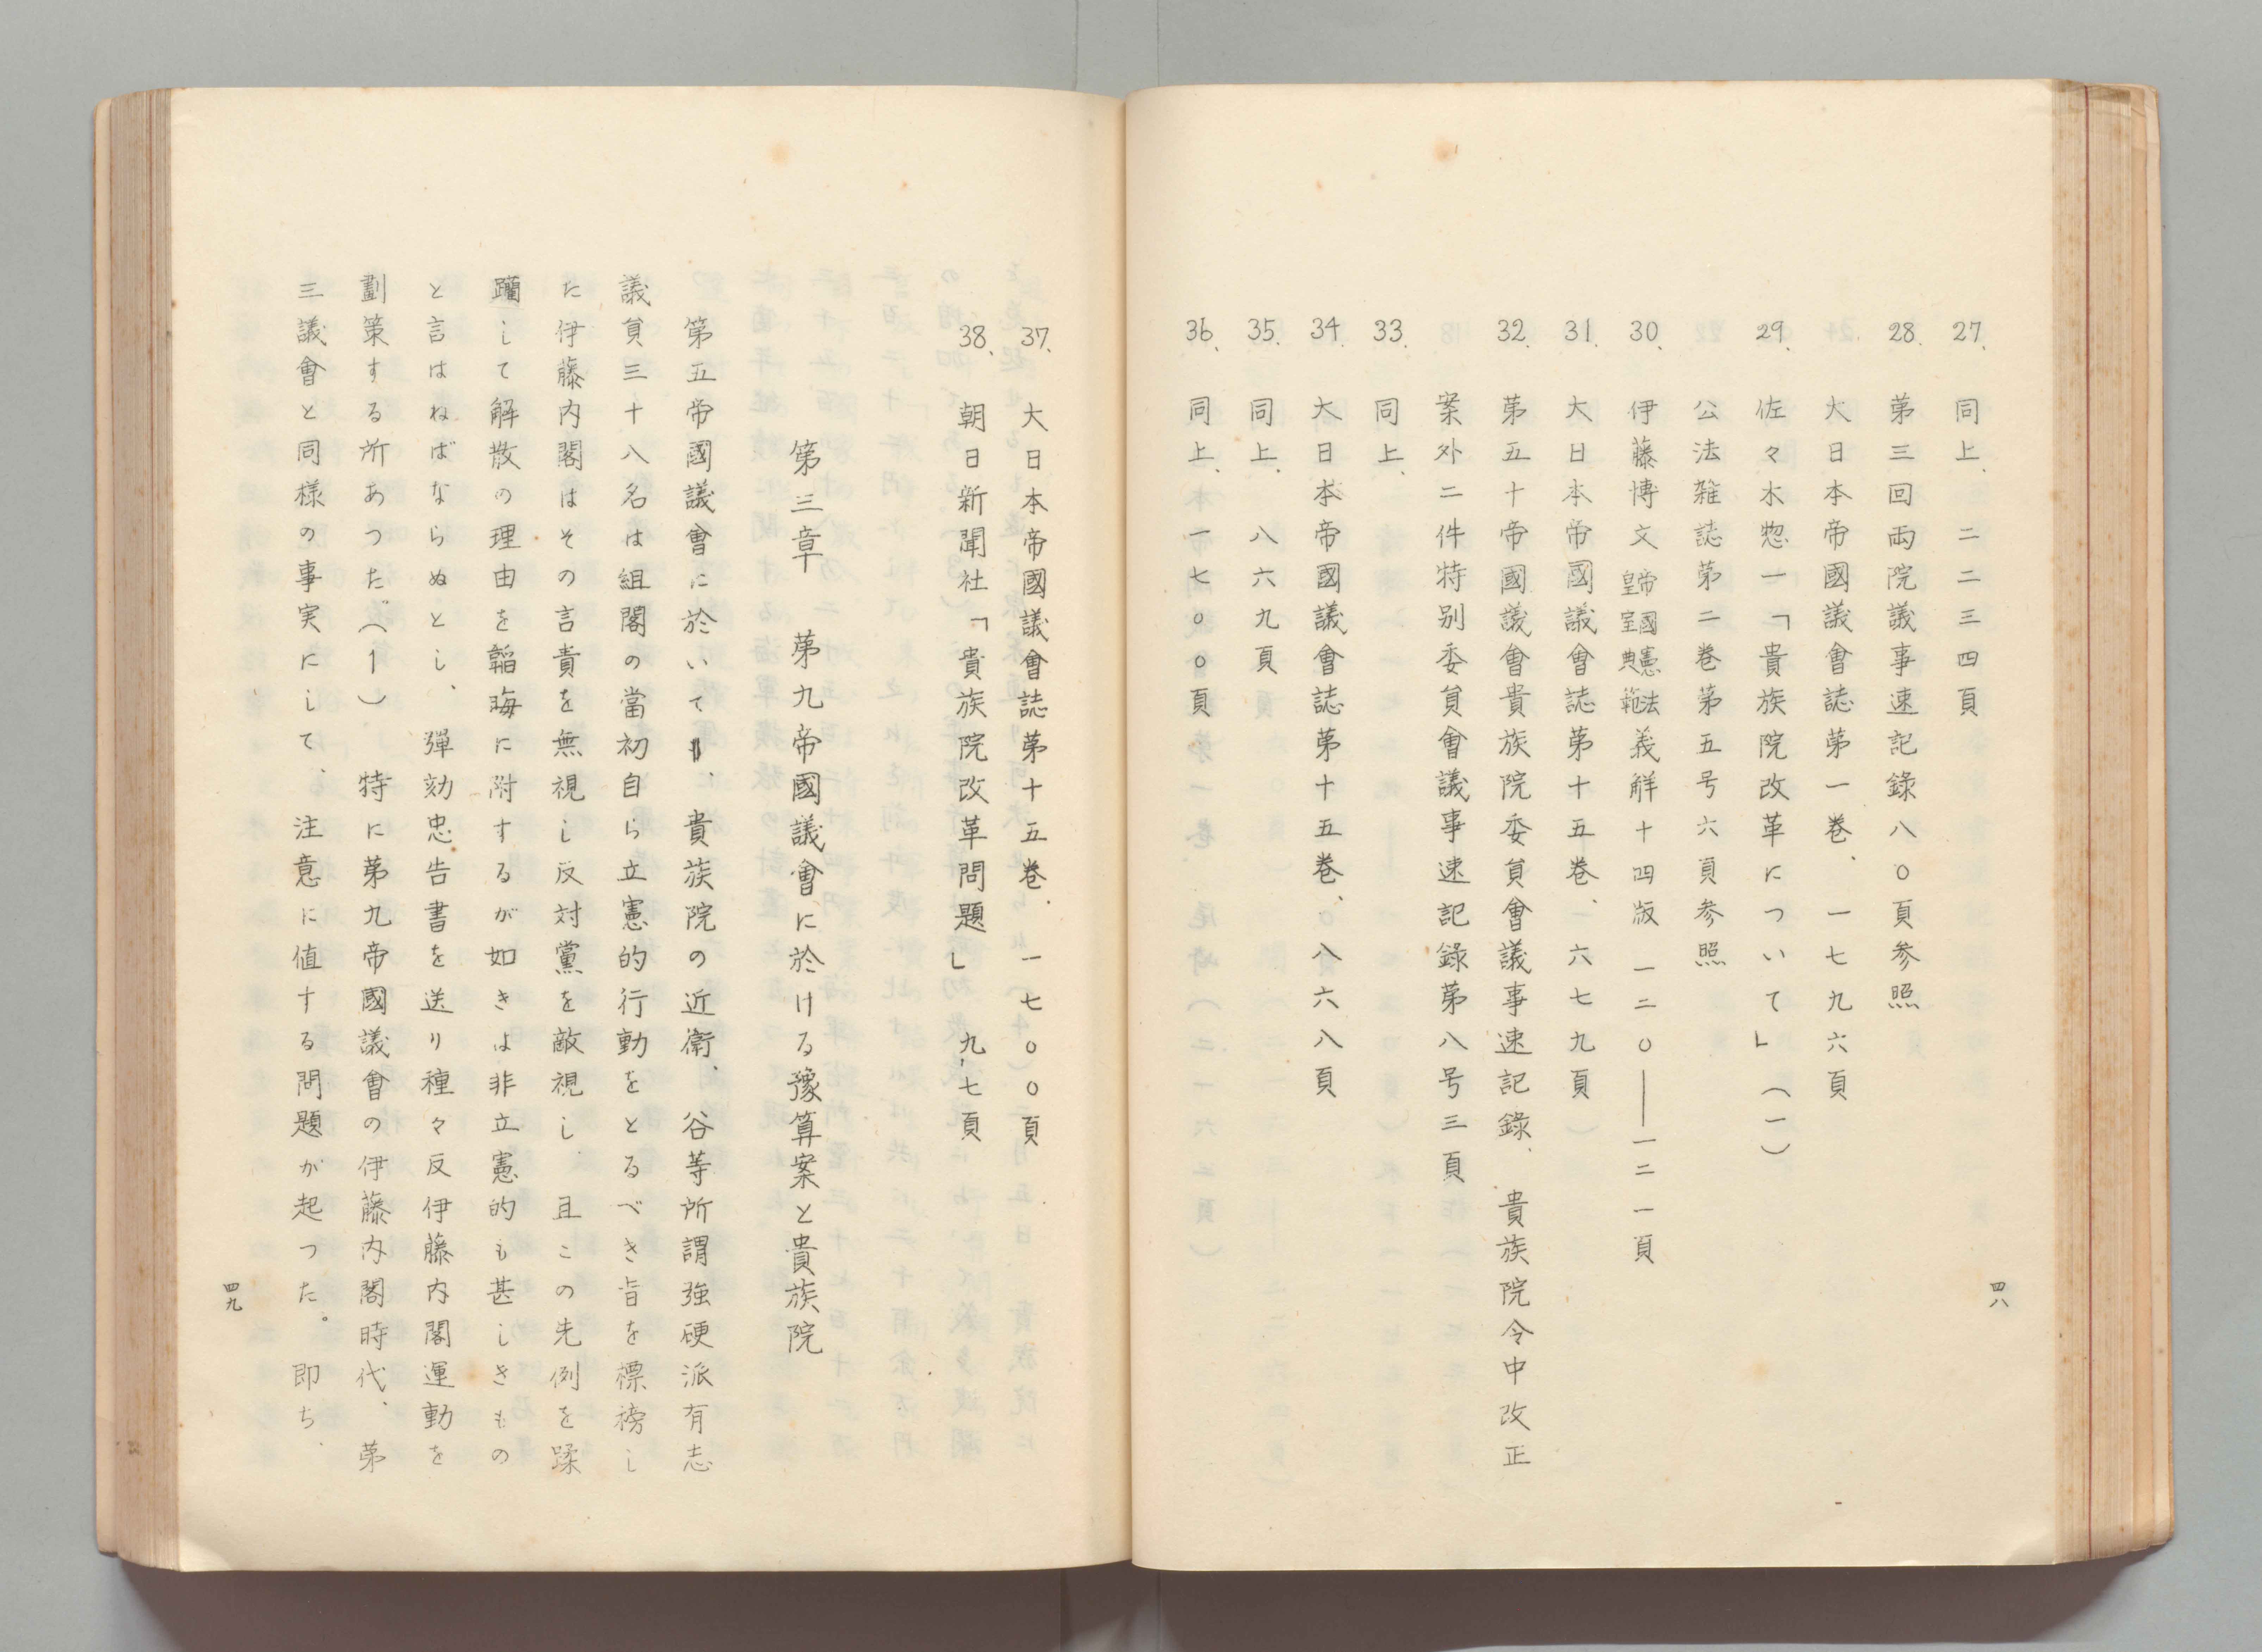 27. 同上、二二三四頁
28. 第三回両院議事速記錄八〇頁参照
大日本帝國議會誌第一巻、一七九六頁
29. 佐々木惣一「貴族院改革について」（一）
公法雑誌第二巻第五号六頁参照
30. 伊藤博文 帝國憲法皇室典範義解十四版 一二〇——一二一頁
31. 大日本帝國議會誌第十五巻、六七九頁
32. 第五十帝國議會貴族院委員會議事速記錄、貴族院令中改正
案外二件特別委員會議事速記錄第八号三頁
33. 同上、
34. 大日本帝國議會誌第十五巻、八六八頁
35. 同上、八六九頁
36. 同上、一七〇〇頁
四八
37. 大日本帝國議會誌第十五巻、一七〇〇頁
38. 朝日新聞社「貴族院改革問題」九、七頁
第三章 第九帝國議會に於ける豫算案と貴族院
第五帝國議會に於いて、貴族院の近衛、谷等所謂強硬派有志
議員三十八名は組閣の當初自ら立憲的行動をとるべき旨を標榜し
た伊藤内閣はその言責を無視し反対黨を敵視し、且この先例を蹂
躪して解散の理由を韜晦に附するが如きは非立憲的も甚しきもの
と言はねばならぬとし、彈劾忠告書を送り種々反伊藤内閣運動を
劃策する所あつた。（1）特に第九帝國議會の伊藤内閣時代、第
三議會と同様の事実にして、注意に値する問題が起つた。即ち、
四九